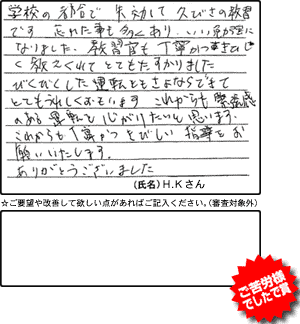 学校の都合で 失効して 久びさの教習
です 忘れた事も多くあり、いい勉強に
なりました。教習官も丁寧かつきびし
く教えくれて とてもたすかりました
びくびくした運転ともさよならできて
とてもうれしくおもいます これからも緊張感
のある運転を心がけたいと思います。
これからも丁寧かつきびしい指導をお
願いいたします。
ありがとうございました
(氏名) H.K さん
☆ご要望や改善して欲しい点があればご記入ください。(審査対象外)
ご苦労様
でしたで賞